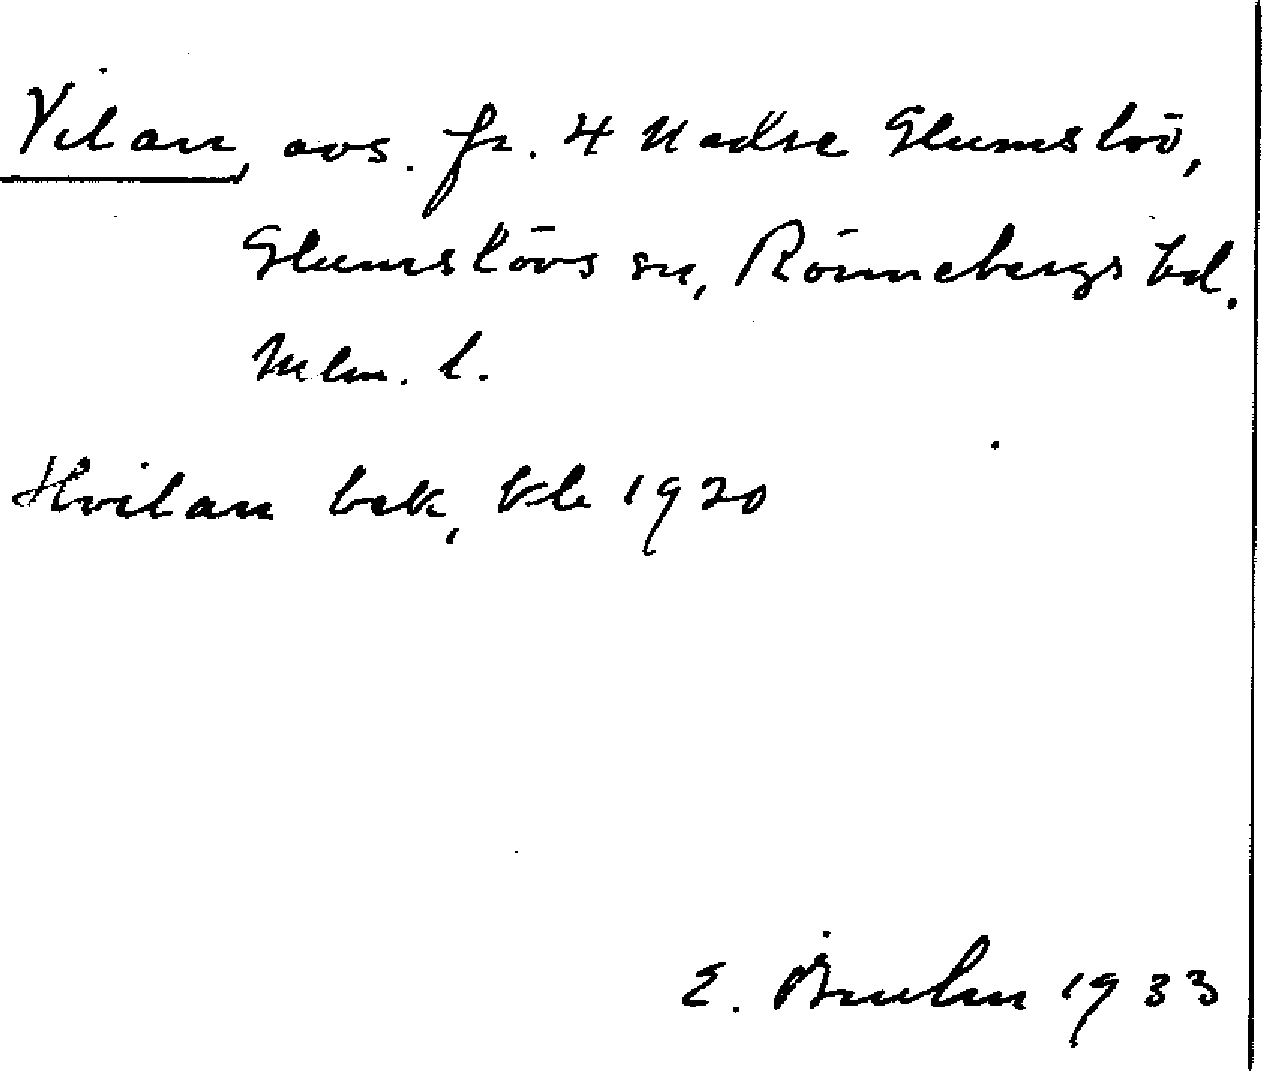 Vilan, avs. fr. 4 Nedre Glumslöv,
Glumslövs sn, Rönnebergs hd.
Mlm. l.
Hvilan bek, Kb 1920
E. Bruhn 1933